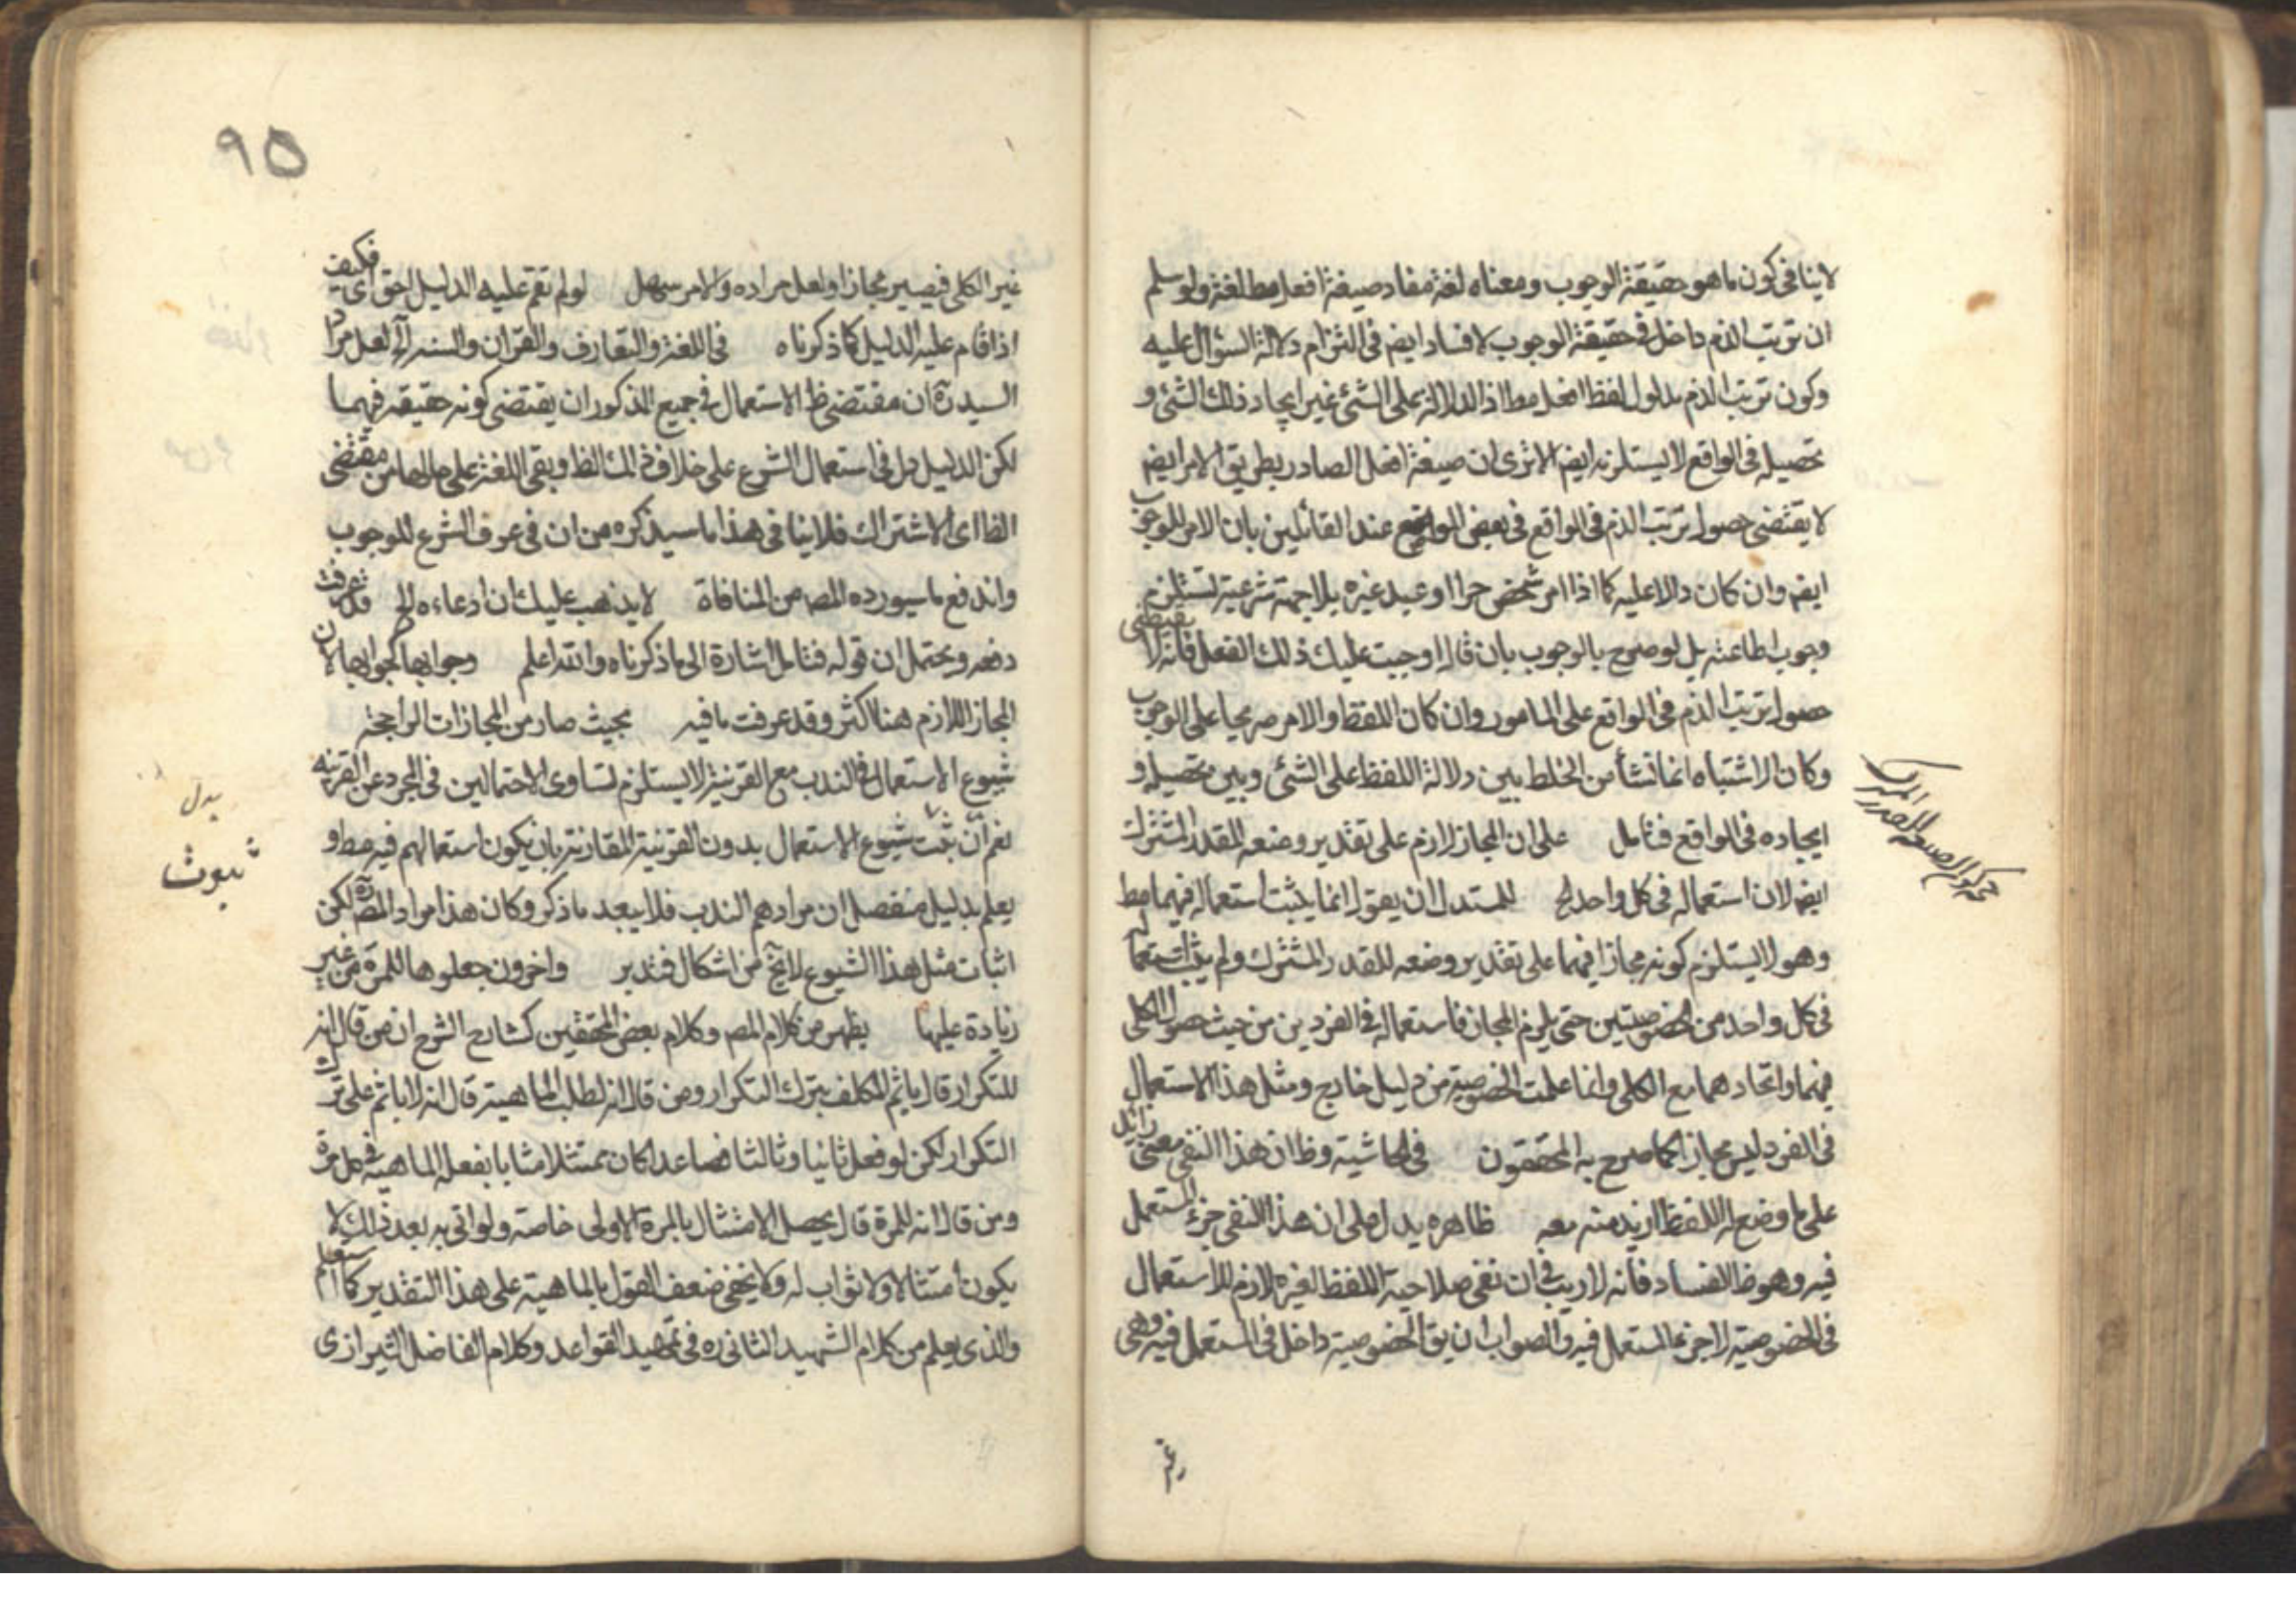 لا ينافى كون ما هو حقيقة الوجوب ومعناه لغة مفاد صيغة افعل مط لغة ولو سلم
ان ترتب الذم داخل فى حقيقة الوجوب لا فساد ايضا فى التزام دلالة السؤال عليه
وكون ترتب الذم مدلول لفظ افعل مط اذ الدلالة على الشئ غير ايجاد ذلك الشئ و
تحصيله فى الواقع لا يستلزمه ايضا الا ترى ان صيغة افعل الصادر بطريق الامر ايضا
لا يقتضى حصول ترتب الذم فى الواقع فى بعض المواضع عند القائلين بان الامر للوجوب
ايضا وان كان دالا عليه كما اذا امر شخص حرا او عبد غيره بلا جهة شرعية تستلزم
وجوب اطاعته بل لو صرح بالوجوب بان قال اوجبت عليك ذلك الفعل فانه لا يقتضى
حصول ترتب الذم فى الواقع على المامور وان كان اللفظ والامر صريحا على الوجوب
وكان الاشتباه انما نشأ من الخلط بين دلالة اللفظ على الشئ وبين تحصيله و
ايجاده فى الواقع فتامل على ان المجاز لازم على تقدير وضعه للقدر المشترك
ايضا لان استعماله فى كل واحد الخ للمستدل ان يقول انما يثبت استعماله فيهما مط
وهو لا يستلزم كونه مجازا فيهما على تقدير وضعه للقدر المشترك ولم يثبت استعماله
فى كل واحد من الخصوصيتين حتى يلزم المجاز فاستعماله فى الفردين من حيث حصول الكلى
فيهما واتحادهما مع الكلى وانما علمت الخصوصية من دليل خارج ومثل هذا الاستعمال
فى الفرد ليس مجازا كما صرح به المحققون فى الحاشية وظ ان هذا النفى معنى زائد
على ما وضع له اللفظ اريد منه معه ظاهره يدل على ان هذا النفى جزء المستعمل
فيه وهو ظ الفساد فانه لا ريب فى ان نفى صلاحية اللفظ لغيره لازم للاستعمال
فى الخصوصية لا جزء المستعمل فيه والصواب ان يق الخصوصية داخل فى المستعمل فيه وهى
غير
٩٥
غير الكلى فيصير مجازا ولعل مراده والامر سهل لو لم تقم عليه الدليل احق اى فكيف
اذا قام عليه الدليل كما ذكرناه فى اللغة والتعارف والقران والسنة الخ لعل مراد
السيد ره ان مقتضى ظ الاستعمال فى جميع المذكور ان يقتضى كونه حقيقة فيهما
لكن الدليل دل فى استعمال الشرع على خلاف ذلك الظ وبقى اللغة على حالها من مقتضى
الظ اى الاشتراك فلا ينافى هذا ما سيذكره من ان فى عرف الشرع للوجوب
واندفع ما سيورده المصـ من المنافاة لا يذهب عليك ان ادعاءه الخ قد عرفت
دفعه ويحتمل ان قوله فتامل اشارة الى ما ذكرناه والله اعلم وجوابها كجوابها لان
المجاز اللازم هنا اكثر وقد عرفت ما فيه بحيث صار من المجازات الراجحة
شيوع الاستعمال فى الندب مع القرنية لا يستلزم تساوى الاحتمالين فى المجرد عن القرينة
نعم ان ثبت شيوع الاستعمال بدون القرنية المقارنة بان يكون استعمالهم فيه مط و
بدل
ثبوت
يعلم بدليل منفصل ان مرادهم الندب فلا يبعد ما ذكر وكان هذا مراد المصـ ره لكن
اثبات مثل هذا الشيوع لا يخ من اشكال فتدبر واخرون جعلوها للمرة من غير
زيادة عليها يظهر من كلام المصـ وكلام بعض المحققين كشارح الشرح ان من قال انه
للتكرار قال ياثم المكلف بترك التكرار ومن قال انه لطلب الماهية قال انه لا ياثم على ترك
التكرار لكن لو فعل ثانيا وثالثا فصاعدا كان ممتثلا مثابا بفعله الماهية فى كل مرة
ومن قال انه للمرة قال يحصل الامتثال بالمرة الاولى خاصة ولو اتى به بعد ذلك لا
يكون امتثالا ولا ثواب له ولا يخفى ضعف القول بالماهية على هذا التقدير كما سنعلم
والذى يعلم من كلام الشهيد الثانى ره فى تمهيد القواعد وكلام الفاضل الشيرازى